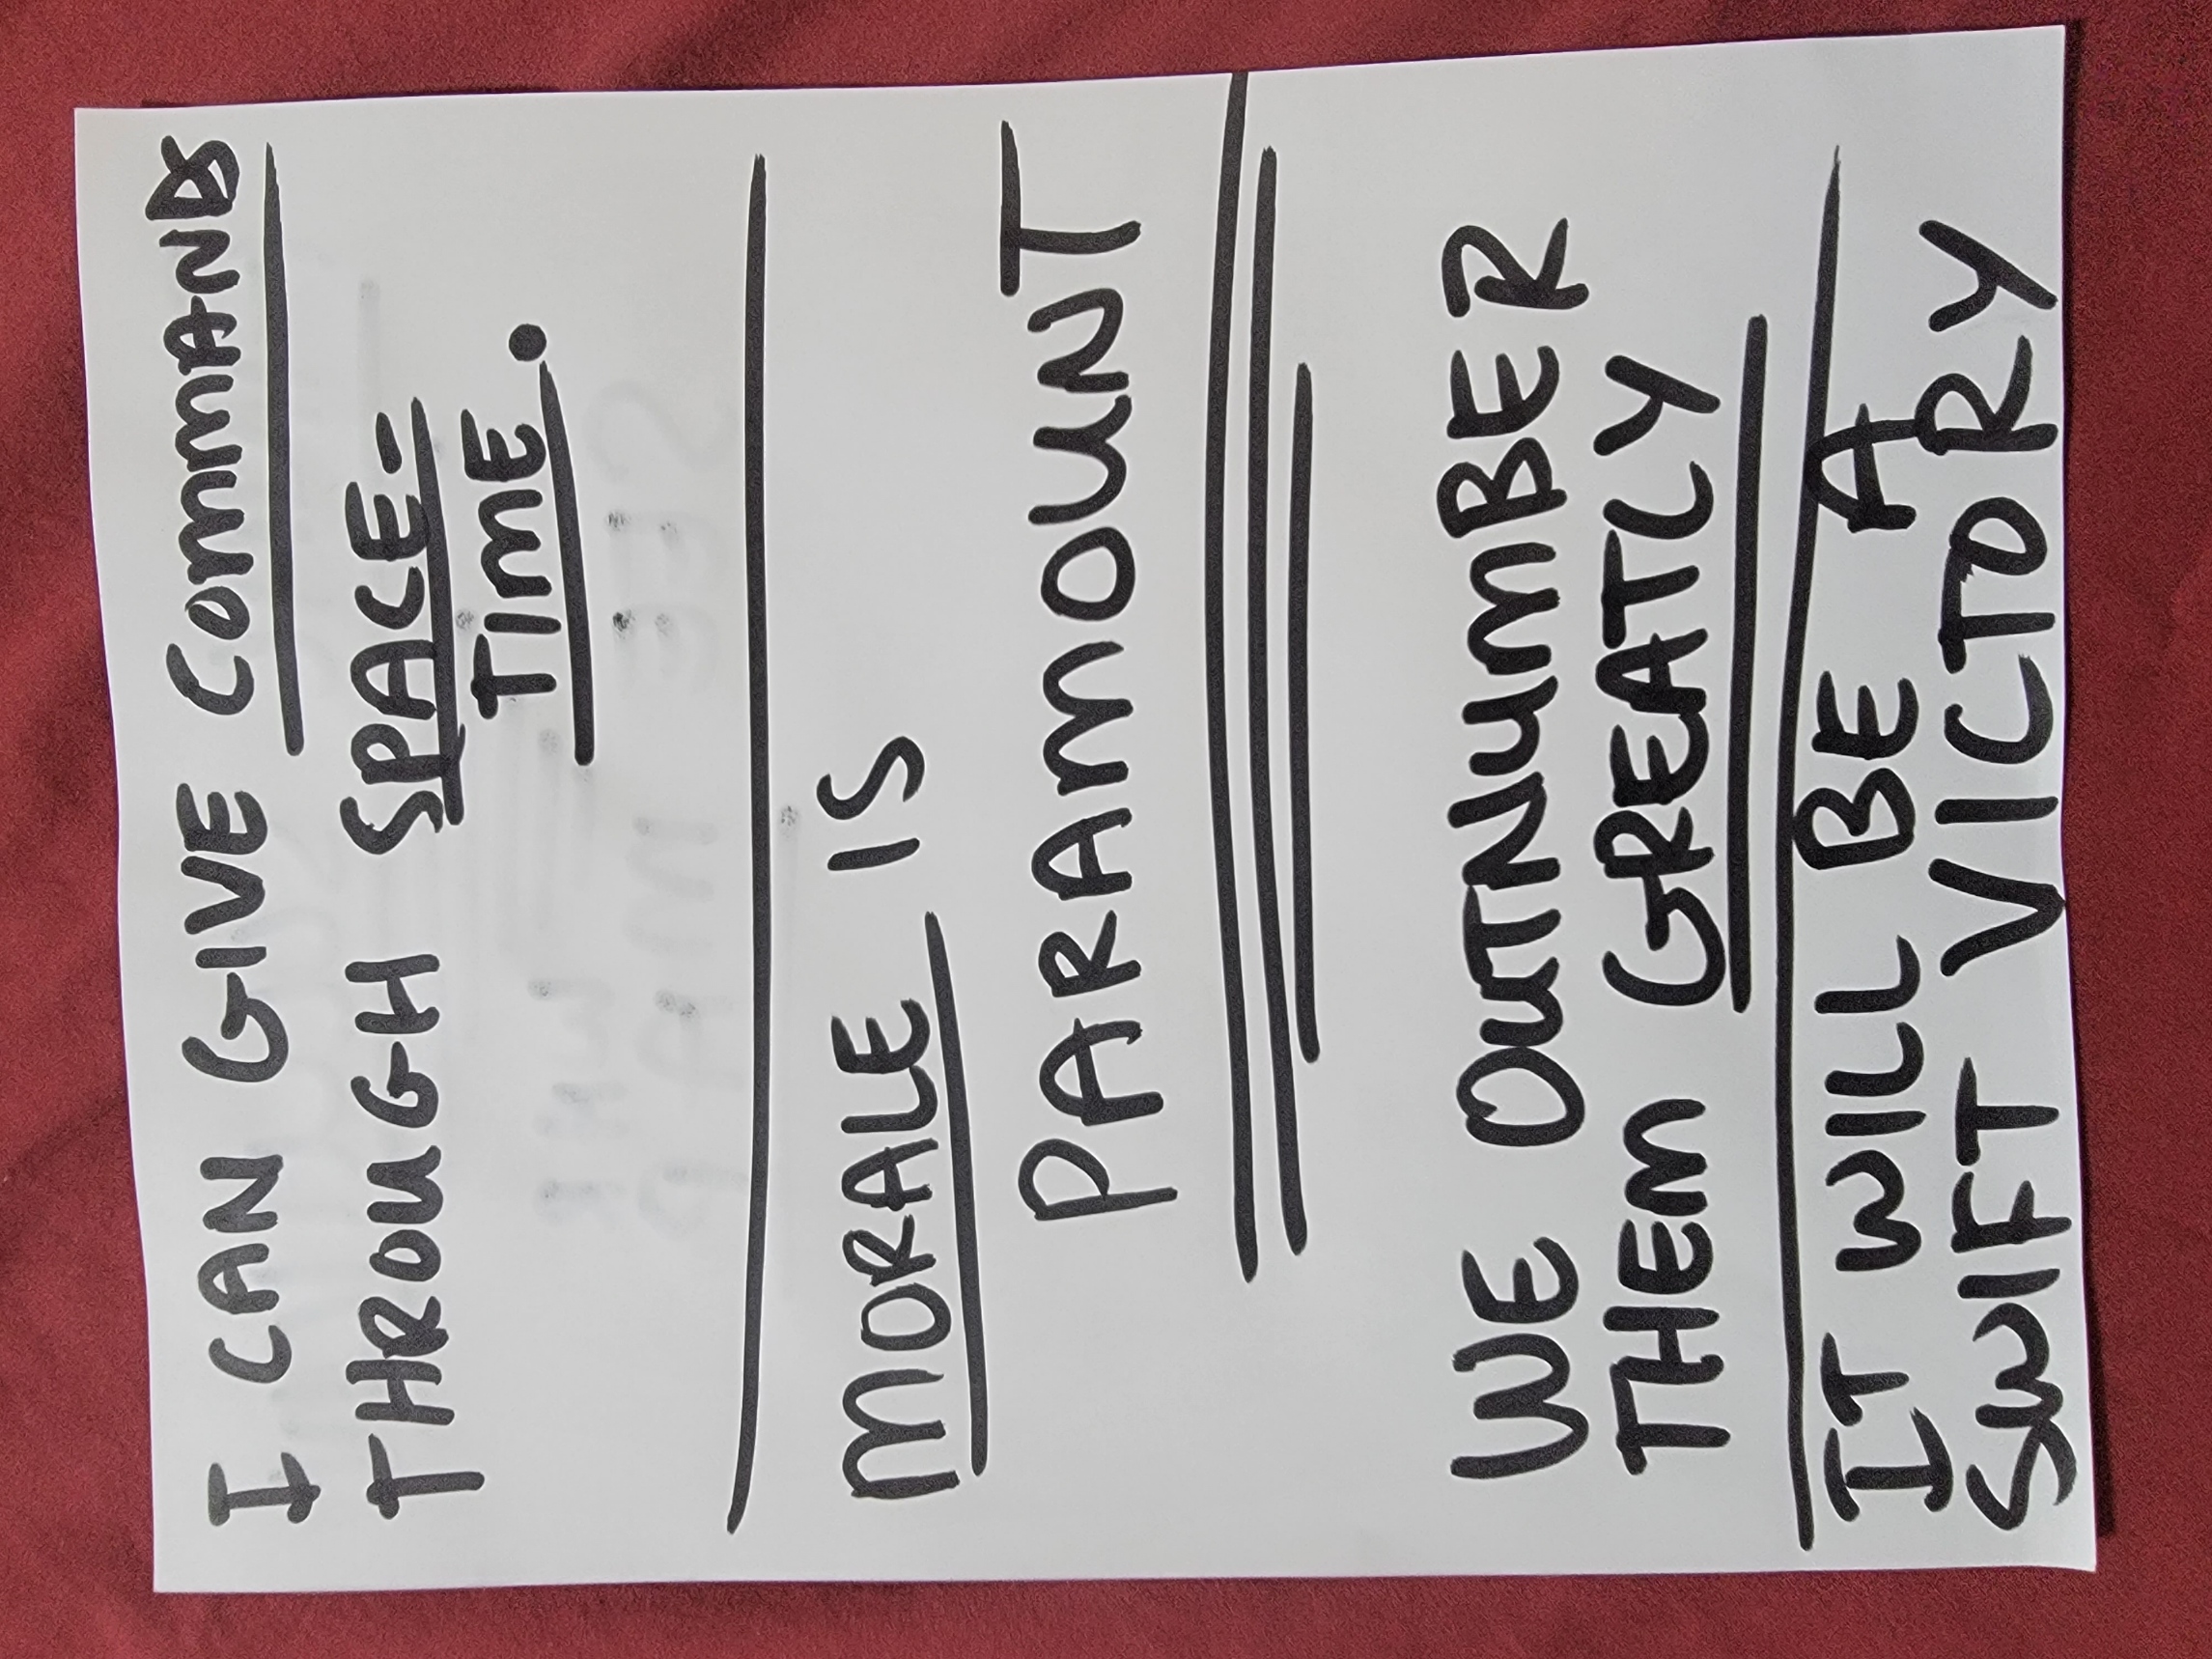 I CAN GIVE COMMANDS
THROUGH SPACE-
TIME.
MORALE IS
PARAMOUNT
WE OUTNUMBER
THEM GREATLY
IT WILL BE A
SWIFT VICTORY